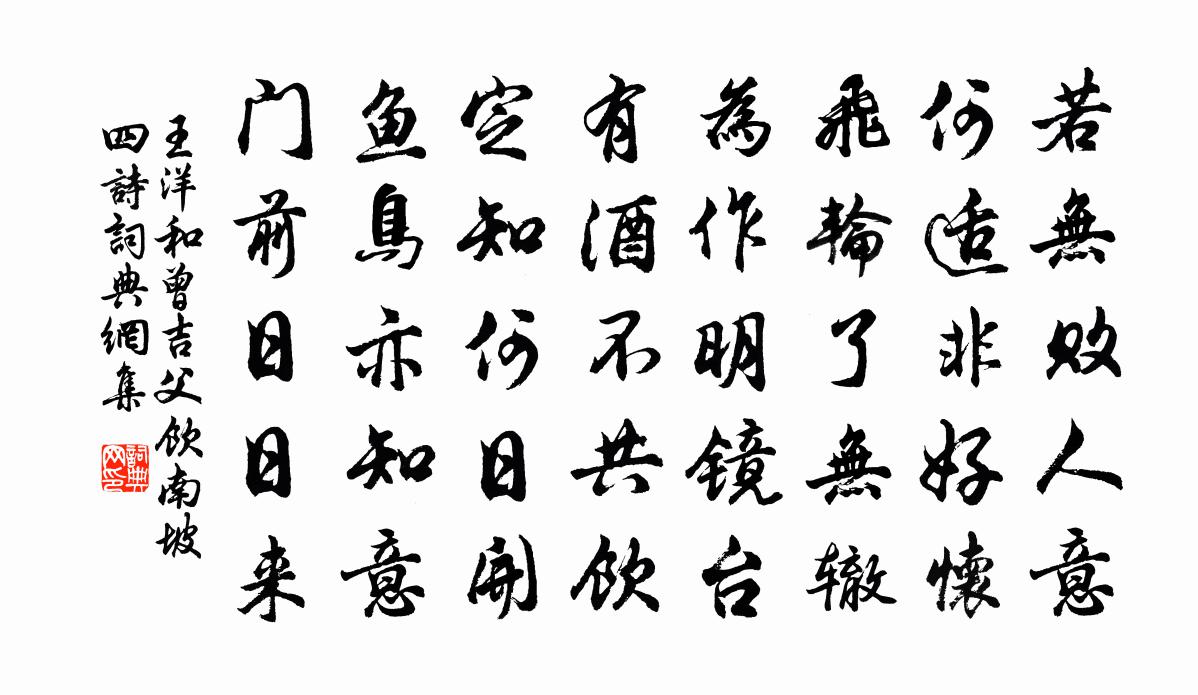 若無敗人意
何适非好懷
飛輪了無轍
為作明镜台
有酒不共飲
定知何日開
鱼鳥亦知意
门前日日来
王洋和曾吉父飲南坡
四詩詞典網集
詞典
网印